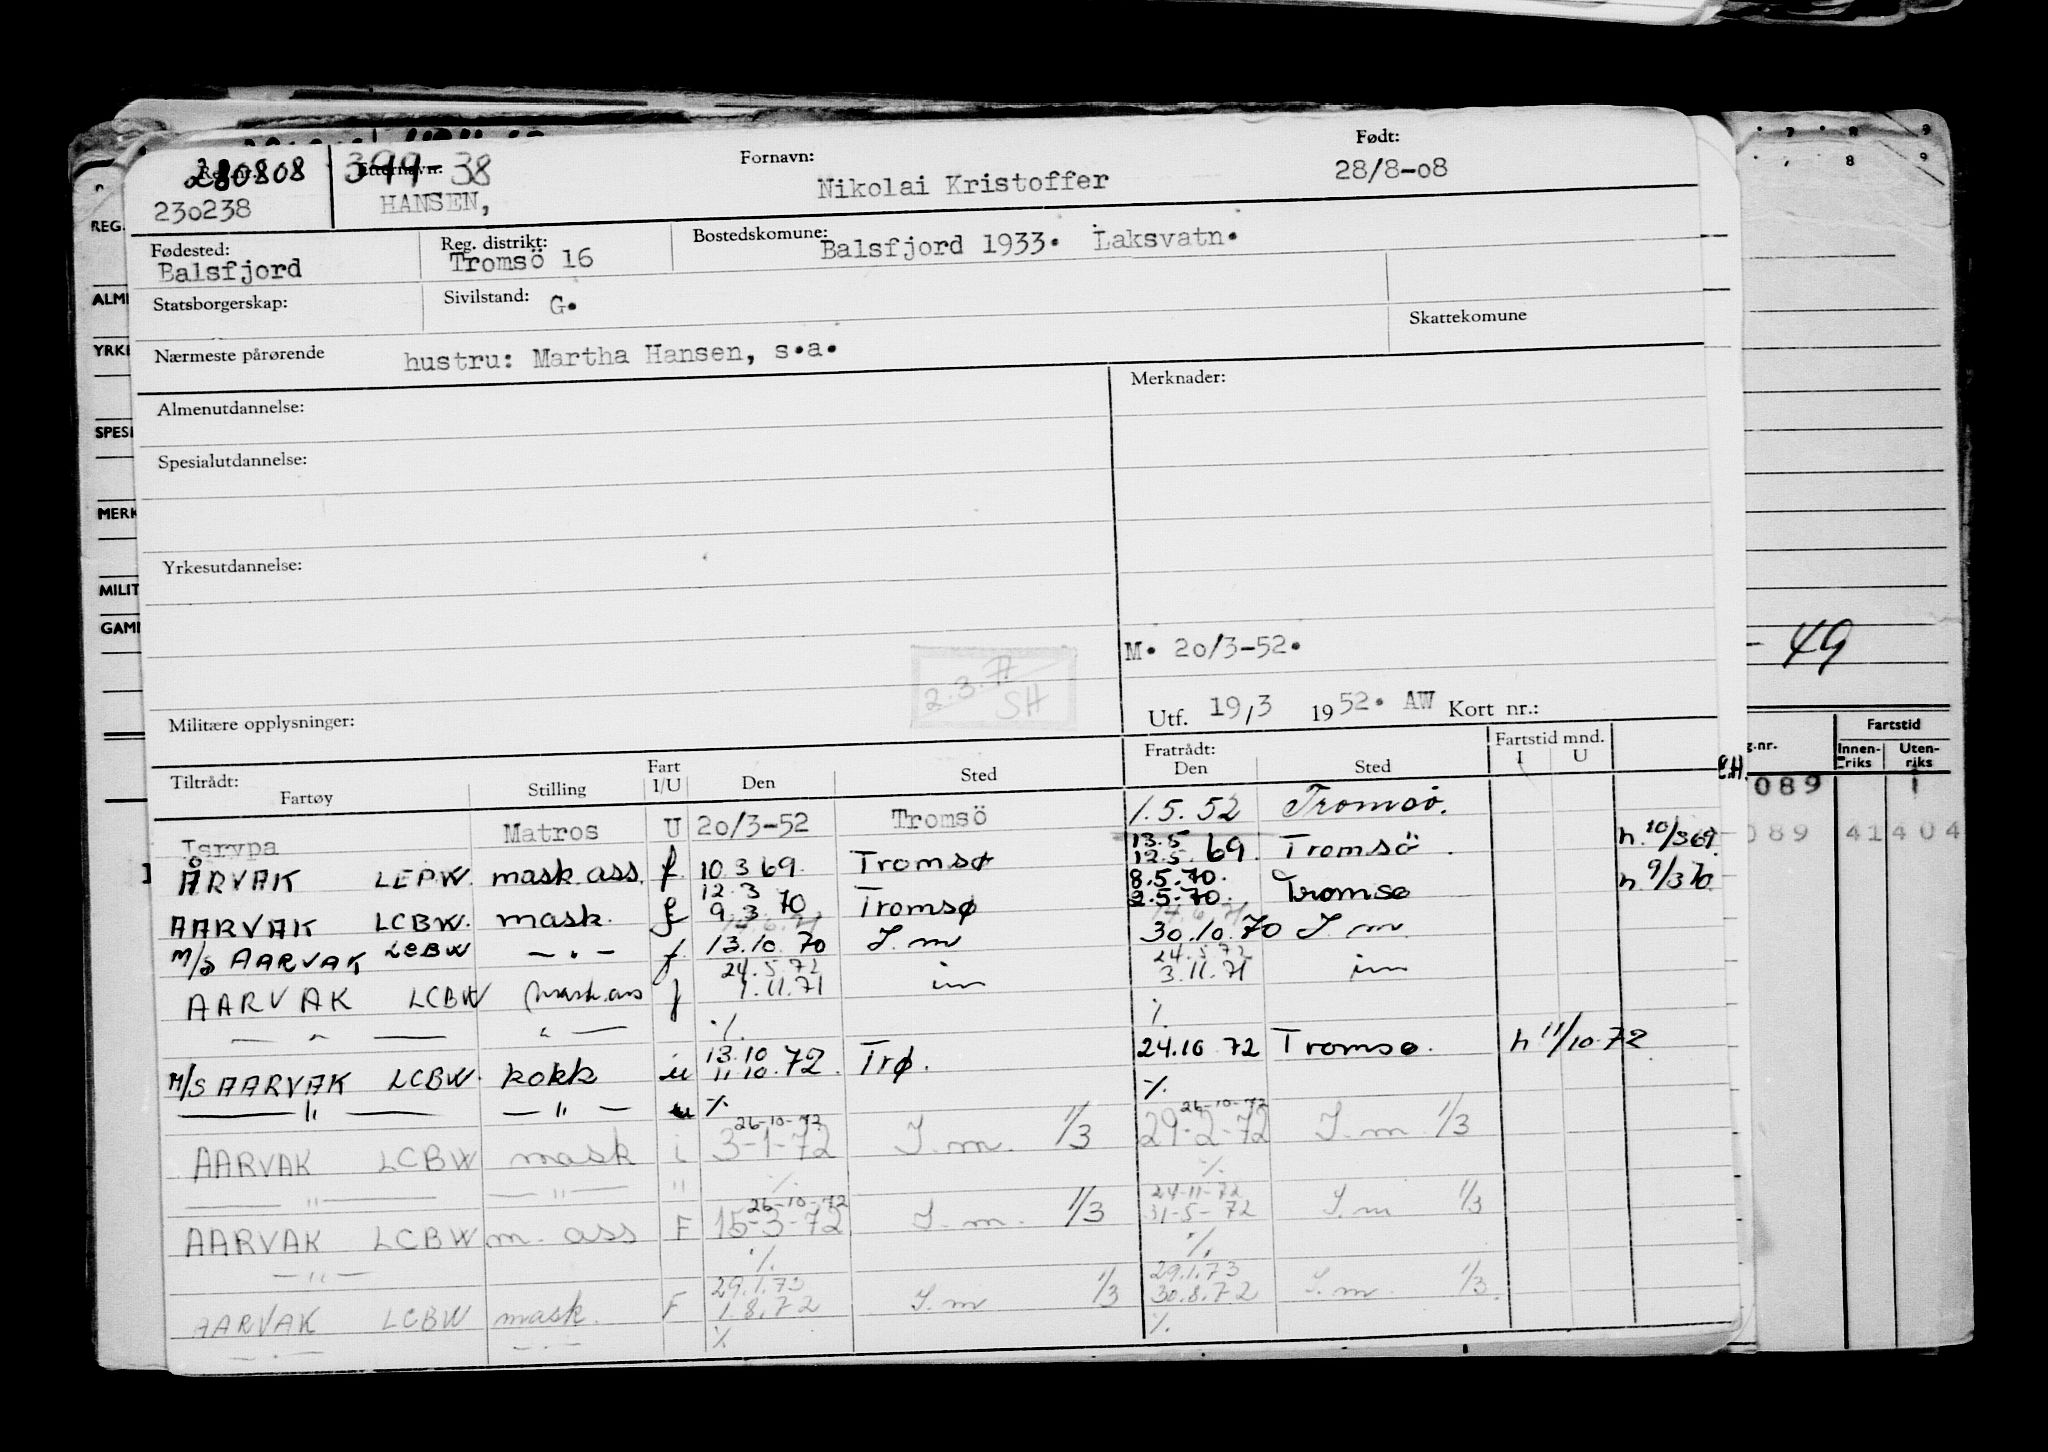 280808 399-38
Reg. nr. Etternavn: Fornavn: Født:
230238 HANSEN, Nikolai Kristoffer 28/8-08
Fødested: Reg. distrikt: Bostedskomune:
Balsfjord Tromsö 16 Balsfjord 1933. Laksvatn.
Statsborgerskap: Sivilstand: G. Skattekomune
Nærmeste pårørende hustru: Martha Hansen, s.a.
Almenutdannelse: Merknader:
Spesialutdannelse:
Yrkesutdannelse:
M. 20/3-52.
2.3.71 SH
Militære opplysninger: Utf. 19/3 1952. AW Kort nr.:
Tiltrådt: Fart Fratrådt: Fartstid mnd.
Fartøy Stilling I/U Den Sted Den Sted I U
Isrypa Matros U 20/3-52 Tromsö 1.5.52 Tromsø.
13.5
ÅRVAK LEPW. mask.ass. f 10.3 69. Tromsø 12.5. 69. Tromsö. h. 10/3 69.
12.3 8.5.70.
AARVAK LCBW. mask. f 9.3 70 Tromsø 2.5.70. Tromsø h. 9/3 70.
M/S AARVAK LCBW — " — f 13.10. 70 I.m 30.10.70 I.m.
24.5.72 24.5.72
AARVAK LCBW mask.ass f 1.11.71 im 3.11.71 im
— " — " — ./. ./.
13.10
M/S AARVAK LCBW. kokk u 11.10. 72. Trø. 24.10 72 Tromsø. h 11/10.72
— " — — " — u ./. ./.
26-10-72 26-10-72
AARVAK LCBW mask i 3-1-72 I.m. 1/3 29-2-72 I.m. 1/3
— " — — " — " ./. ./.
26-10-72 24-11-72
AARVAK LCBW m. ass F 15-3-72 I.m. 1/3 31-5-72 I.m 1/3
— " — ./. ./.
29.1.73 29.1.73
AARVAK LCBW mask. F 1.8.72 I.m 1/3 30.8.72 I.m. 1/3.
— " — — " — ./. ./.
REG.
ALM
YRK
SPES
MERK
MILIT
GAM
7 8 9
8 9
- 49
g.nr. Fartstid
Innenriks Utenriks
089 1
089 41 404